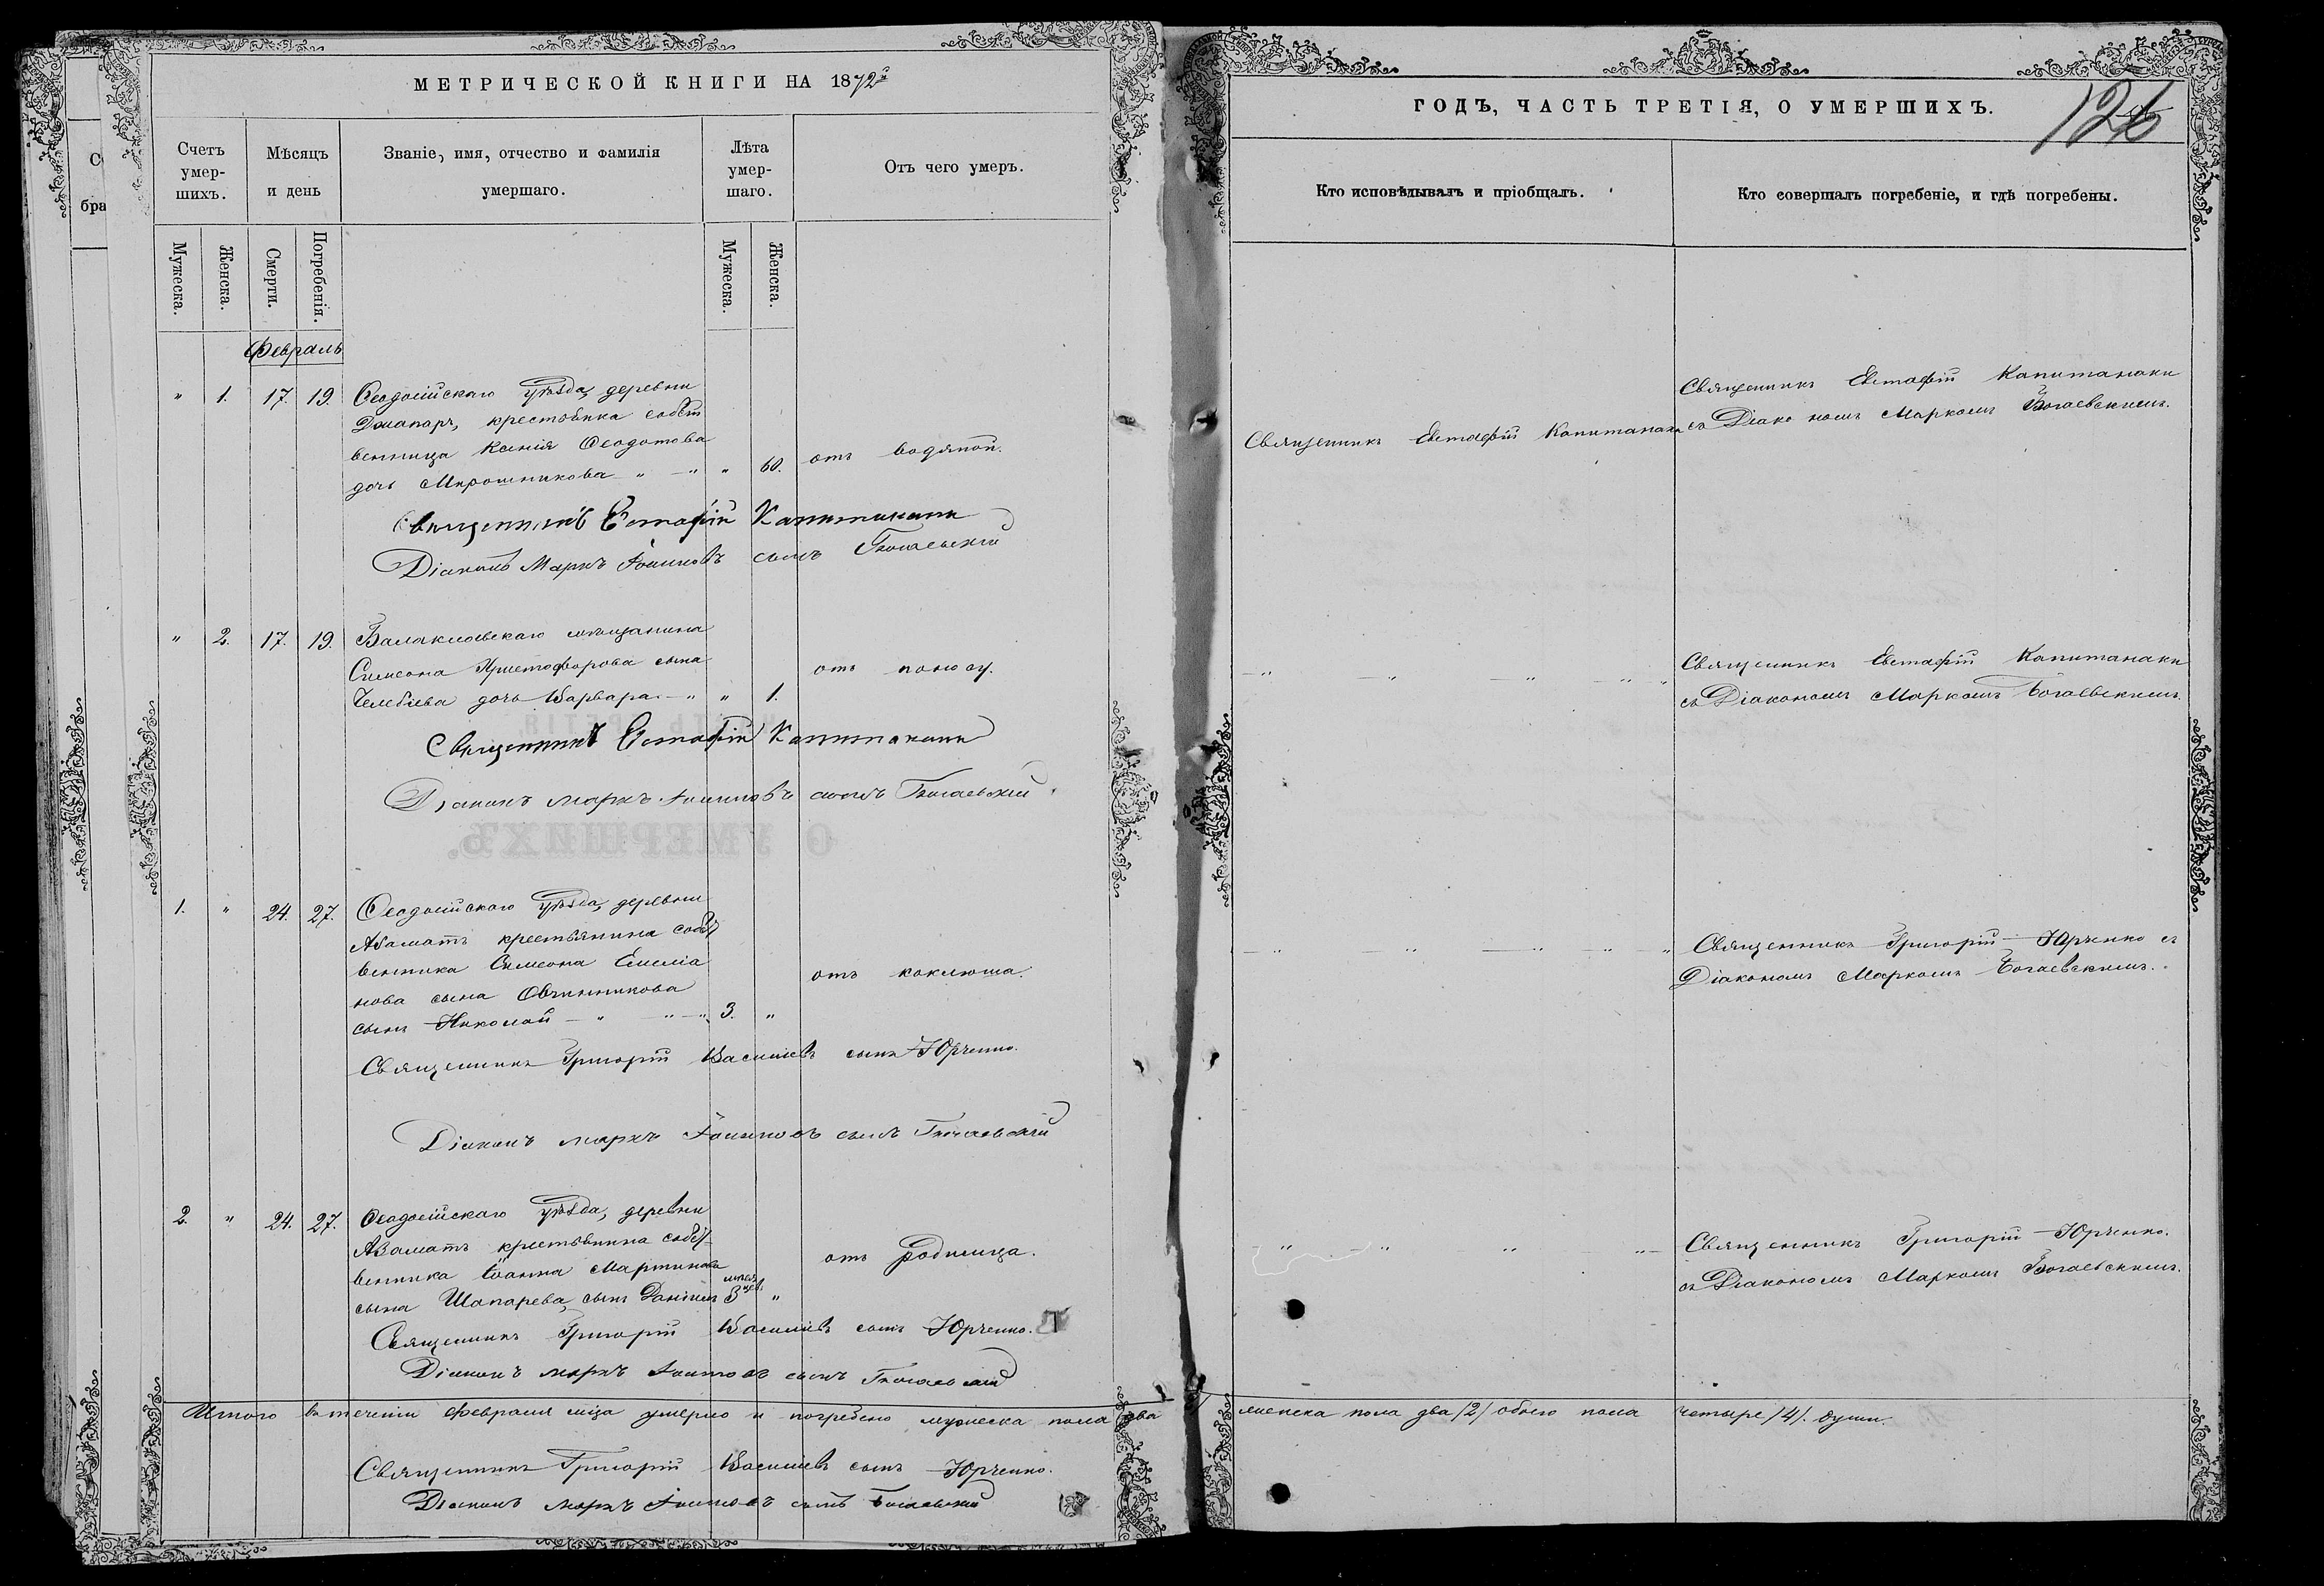 МЕТРИЧЕСКОЙ КНИГИ НА 1872й
Счетъ умер-шихъ.
Мѣсяцъ и день
Званіе, имя, отчество и фамилія умершаго.
Лѣта умер-шаго.
Отъ чего умеръ.
Мужеска.
Женска.
Смерти.
Погребенія.
Мужеска.
Женска.
Февраль
" 1. 17. 19. Ѳеодосійскаго уѣзда, деревни
крестьянка собст
венница Ксенія Ѳеодотова
дочь Мирошникова " — " " 60. отъ водяной.
Священникъ Евстафій Капитанаки
Діаконъ Маркъ Іоанновъ сынъ Богаевскій
" 2. 17. 19. Балаклавскаго мѣщанина
Симеона Христофорова сына
Челебіева дочь Варвара — " " 1. отъ поносу.
Священникъ Евстафій Капитанаки
Діаконъ Маркъ Іоанновъ сынъ Богаевскій
1. " 24. 27. Ѳеодосійскаго уѣзда, деревни
Абаматъ крестьянина собст
венника Симеона Емелiа
нова сына Овчинникова
сынъ Николай — " — " — " 3. " отъ коклюша.
Священникъ Григорій Василіевъ сынъ Юрченко.
Діаконъ Маркъ Іоанновъ сынъ Богаевскій
2. " 24. 27. Ѳеодосійскаго уѣзда, деревни
Абаматъ крестьянина собст-
венника Іоанна Мартинова
сына Шапарева, сынъ Даніилъ 3 " отъ родимца.
Священникъ Григорій Василіевъ сынъ Юрченко.
Діаконъ Маркъ Іоанновъ сынъ Богаевскій
Итого въ теченіи Февраля мца умерло и погребено мужеска пола два
Священникъ Григорій Василіевъ сынъ Юрченко.
Діаконъ Маркъ Іоанновъ сынъ Богаевскій
ГОДЪ, ЧАСТЬ ТРЕТІЯ, О УМЕРШИХЪ.
126
Кто исповѣдывалъ и пріобщалъ.
Кто совершалъ погребеніе, и гдѣ погребены.
Священникъ Евстафій Капитанаки
Священникъ Евстафій Капитанаки
съ Діакономъ Маркомъ Богаевскимъ.
Священникъ Евстафій Капитанаки
съ Діакономъ Маркомъ Богаевскимъ.
Священникъ Григорій Юрченко съ
Діакономъ Маркомъ Богаевскимъ.
Священникъ Григорій Юрченко.
съ Діакономъ Маркомъ Богаевскимъ.
женска пола два /2/ обоего пола четыре /4/. души.